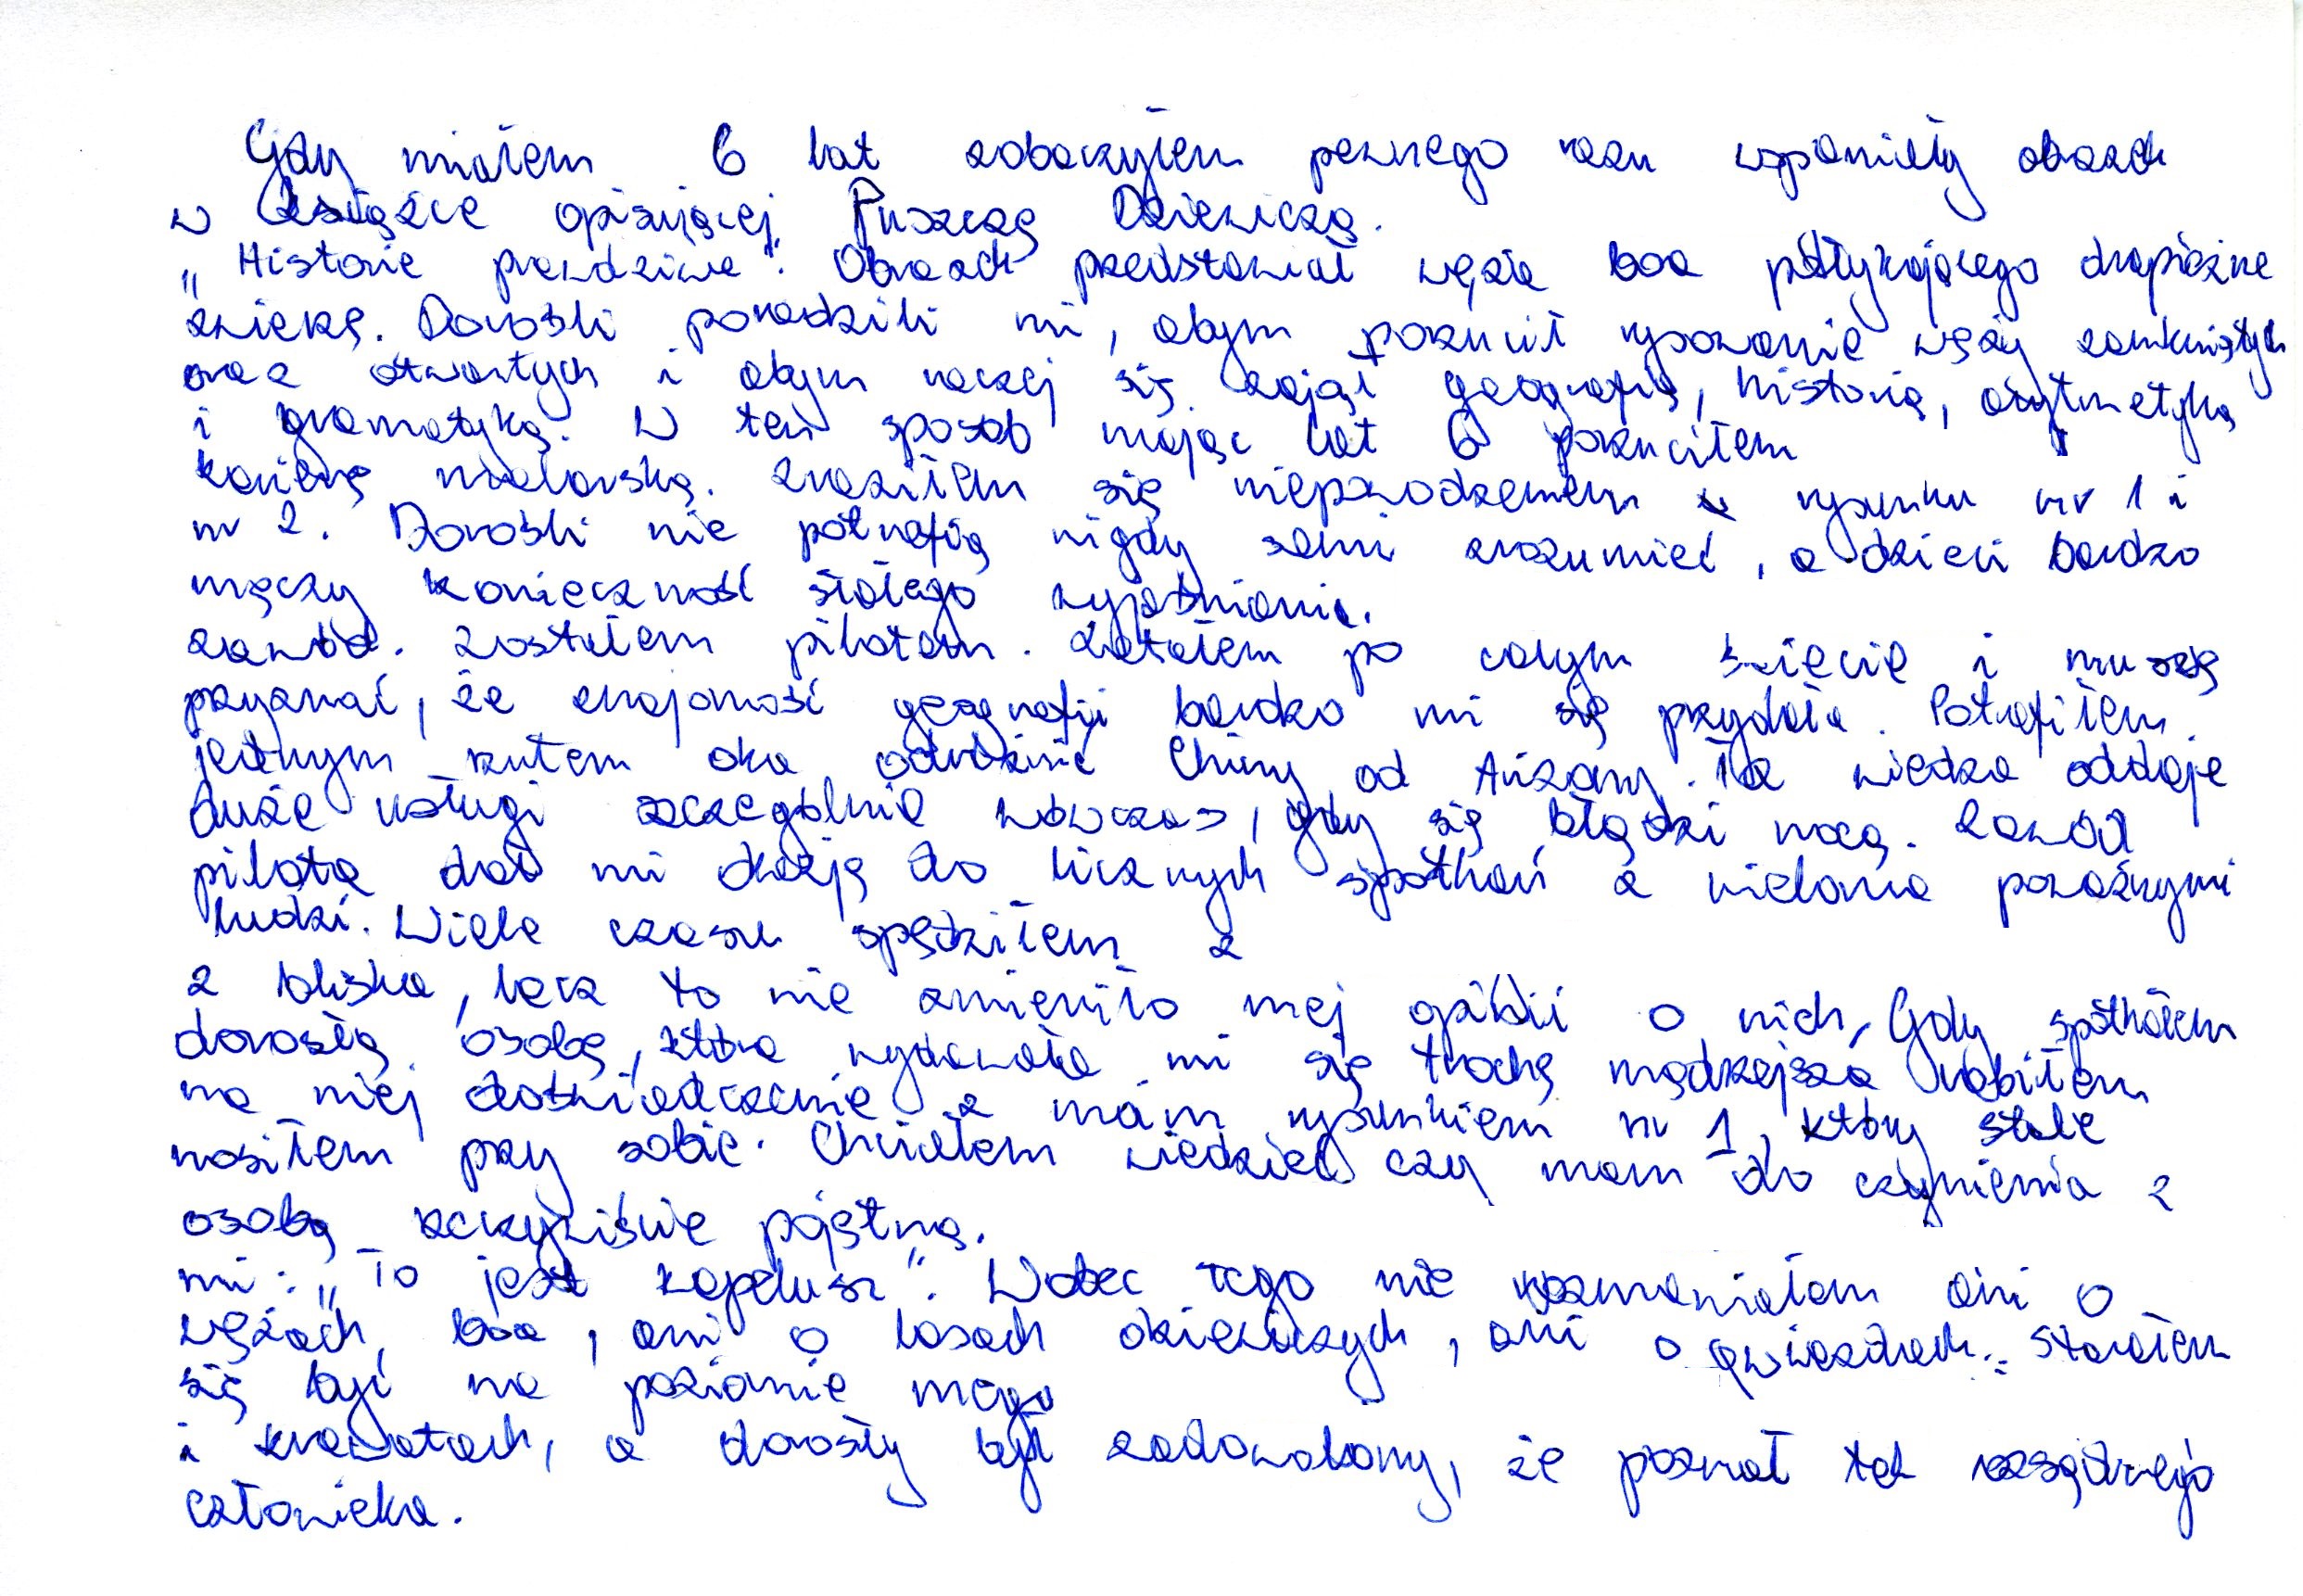 Gdy miałem 6 lat zobaczyłem pewnego razu wspaniały obrazek
w książce opisującej Puszczę Dziewiczą.
„Historie prawdziwe". Obrazek przedstawiał węża boa połykającego drapieżne
zwierzę. Dorośli poradzili mi, abym porzucił rysowanie węży zamkniętych
oraz otwartych i abym raczej się zajął geografią, historią, arytmetyką
i gramatyką. W ten sposób mając lat 6 porzuciłem
karierę malarską. Zraziłem się niepowodzeniem rysunku nr 1 i
nr 2. Dorośli nie potrafią nigdy sami zrozumieć, a dzieci bardzo
męczy konieczność stałego wyjaśniania.
zawód. Zostałem pilotem. Latałem po całym świecie i muszę
przyznać, że znajomość geografii bardzo mi się przydała. Potrafiłem
jednym rzutem oka odróżnić Chiny od Arizony. Ta wiedza oddaje
duże usługi szczególnie wówczas, gdy się błądzi nocą. Zawód
pilota dał mi okazję do licznych spotkań z wieloma poważnymi
ludzi. Wiele czasu spędziłem z
z bliska, lecz to nie zmieniło mej opinii o nich. Gdy spotkałem
dorosłą osobę, która wydawała mi się trochę mądrzejsza robiłem
na niej doświadczenie z moim rysunkiem nr 1, który stale
nosiłem przy sobie. Chciałem wiedzieć czy mam do czynienia z
osobą rzeczywiście pojętną.
mi: „To jest kapelusz". Wobec tego nie rozmawiałem ani o
wężach boa, ani o lasach dziewiczych, ani o gwiazdach. Starałem
się być na poziomie mego
i krawatach, a dorosły był zadowolony, że poznał tak rozsądnego
człowieka.